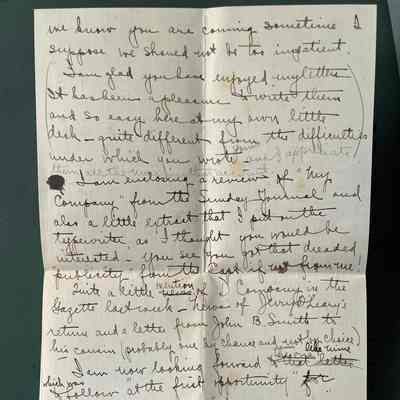 we know you are coming sometime I
suppose we should not be too impatient.
(I am glad you have enjoyed my letters
It has been a pleasure to write them
and so easy here at my own little
desk - quite different from the difficulties
under which you wrote and I appreciate
them all the more
I am enclosing a review of "My
Company" from the Sunday Journal and
also a little extract that I put on the
typewriter as I thought you would be
interested - You see you got that dreaded
publicity from the Capt if not from me!
Quite a little news mention of D Company in the
Gazette last week - news of Jerry O'Leary's
return and a letter from John B. Smith to
his cousin (probably one by chance and not by choice)
I am now looking forward to that letter like mine
which was
to follow "at the first opportunity" for